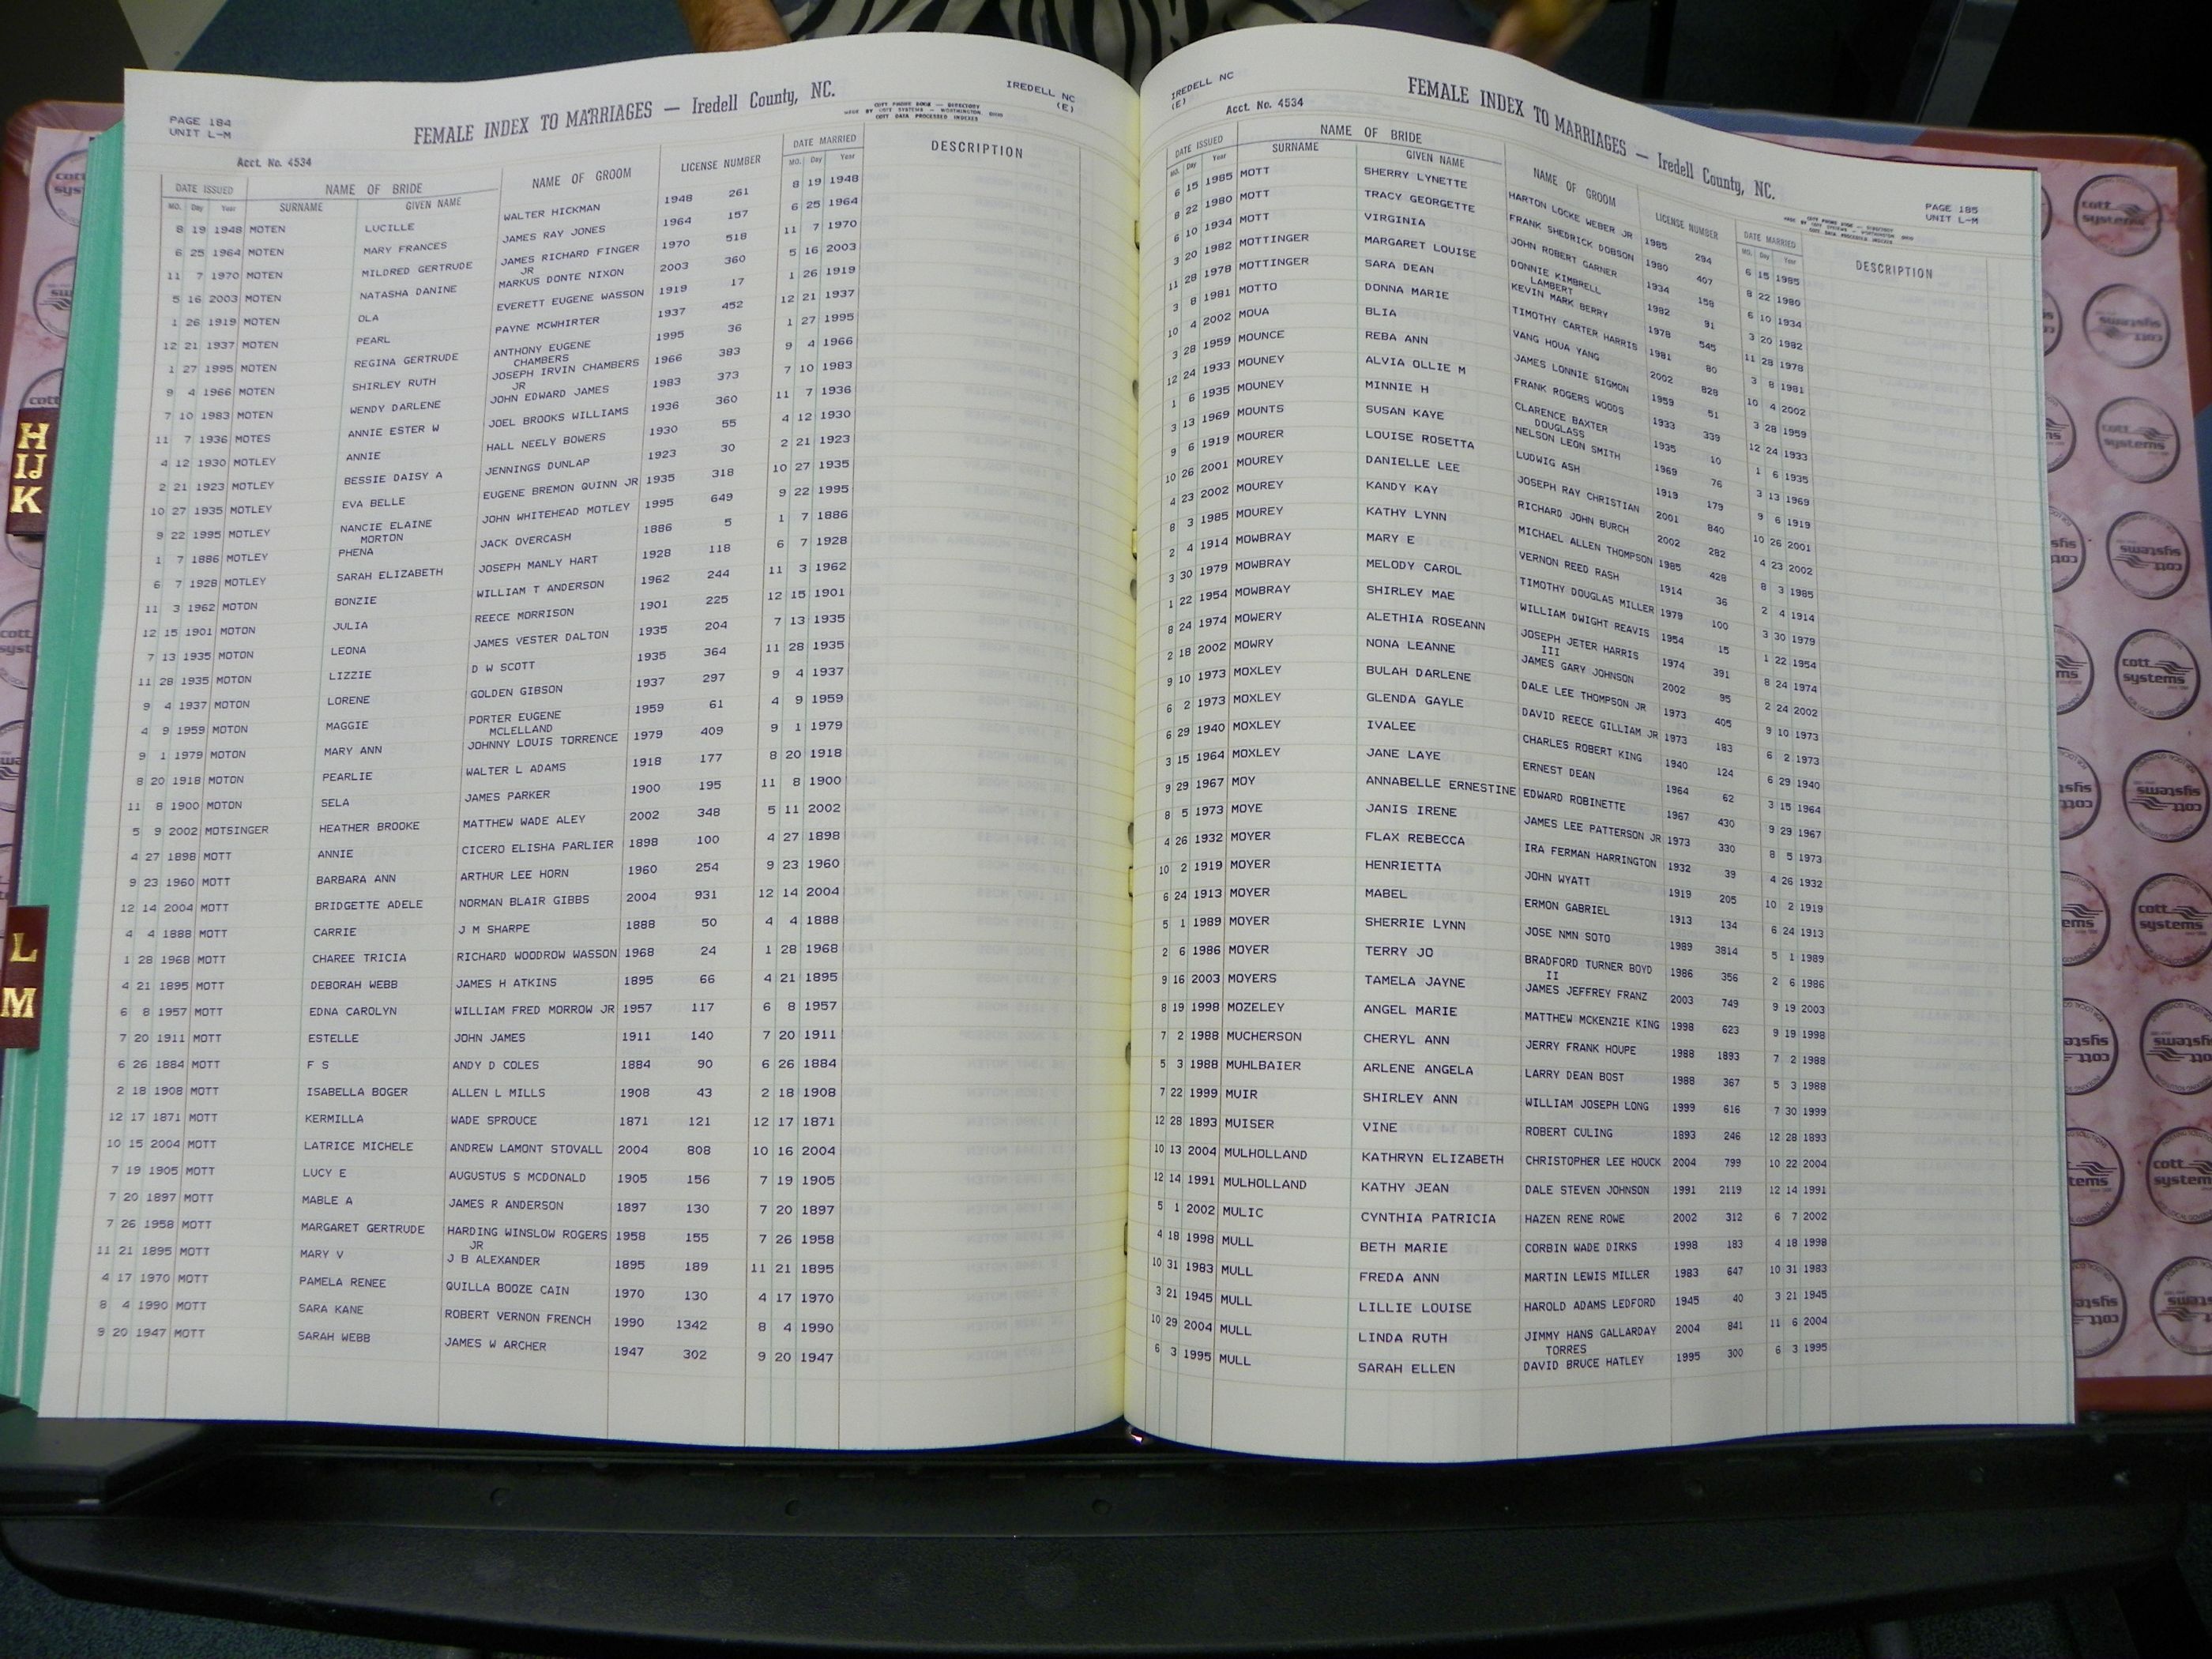 PAGE 184
UNIT L-M
FEMALE INDEX TO MARRIAGES — Iredell County, NC.
IREDELL NC
(E)
COTT PHONO BOOK — DIRECTORY
MADE BY COTT SYSTEMS — WORTHINGTON,
COTT DATA PROCESSED INDEXES
Acct. No. 4534
DATE ISSUED NAME OF BRIDE NAME OF GROOM LICENSE NUMBER DATE MARRIED DESCRIPTION
MO. Day Year SURNAME GIVEN NAME MO. Day Year
8 19 1948 MOTEN LUCILLE WALTER HICKMAN 1948 261 8 19 1948
6 25 1964 MOTEN MARY FRANCES JAMES RAY JONES 1964 157 6 25 1964
11 7 1970 MOTEN MILDRED GERTRUDE JAMES RICHARD FINGER 1970 518 11 7 1970
JR
5 16 2003 MOTEN NATASHA DANINE MARKUS DONTE NIXON 2003 360 5 16 2003
1 26 1919 MOTEN OLA EVERETT EUGENE WASSON 1919 17 1 26 1919
12 21 1937 MOTEN PEARL PAYNE MCWHIRTER 1937 452 12 21 1937
1 27 1995 MOTEN REGINA GERTRUDE ANTHONY EUGENE 1995 36 1 27 1995
CHAMBERS
9 4 1966 MOTEN SHIRLEY RUTH JOSEPH IRVIN CHAMBERS 1966 383 9 4 1966
JR
7 10 1983 MOTEN WENDY DARLENE JOHN EDWARD JAMES 1983 373 7 10 1983
11 7 1936 MOTES ANNIE ESTER W JOEL BROOKS WILLIAMS 1936 360 11 7 1936
4 12 1930 MOTLEY ANNIE HALL NEELY BOWERS 1930 55 4 12 1930
2 21 1923 MOTLEY BESSIE DAISY A JENNINGS DUNLAP 1923 30 2 21 1923
10 27 1935 MOTLEY EVA BELLE EUGENE BREMON QUINN JR 1935 318 10 27 1935
9 22 1995 MOTLEY NANCIE ELAINE JOHN WHITEHEAD MOTLEY 1995 649 9 22 1995
MORTON
1 7 1886 MOTLEY PHENA JACK OVERCASH 1886 5 1 7 1886
6 7 1928 MOTLEY SARAH ELIZABETH JOSEPH MANLY HART 1928 118 6 7 1928
11 3 1962 MOTON BONZIE WILLIAM T ANDERSON 1962 244 11 3 1962
12 15 1901 MOTON JULIA REECE MORRISON 1901 225 12 15 1901
7 13 1935 MOTON LEONA JAMES VESTER DALTON 1935 204 7 13 1935
11 28 1935 MOTON LIZZIE D W SCOTT 1935 364 11 28 1935
9 4 1937 MOTON LORENE GOLDEN GIBSON 1937 297 9 4 1937
4 9 1959 MOTON MAGGIE PORTER EUGENE 1959 61 4 9 1959
MCLELLAND
9 1 1979 MOTON MARY ANN JOHNNY LOUIS TORRENCE 1979 409 9 1 1979
8 20 1918 MOTON PEARLIE WALTER L ADAMS 1918 177 8 20 1918
11 8 1900 MOTON SELA JAMES PARKER 1900 195 11 8 1900
5 9 2002 MOTSINGER HEATHER BROOKE MATTHEW WADE ALEY 2002 348 5 11 2002
4 27 1898 MOTT ANNIE CICERO ELISHA PARLIER 1898 100 4 27 1898
9 23 1960 MOTT BARBARA ANN ARTHUR LEE HORN 1960 254 9 23 1960
12 14 2004 MOTT BRIDGETTE ADELE NORMAN BLAIR GIBBS 2004 931 12 14 2004
4 4 1888 MOTT CARRIE J M SHARPE 1888 50 4 4 1888
1 28 1968 MOTT CHAREE TRICIA RICHARD WOODROW WASSON 1968 24 1 28 1968
4 21 1895 MOTT DEBORAH WEBB JAMES H ATKINS 1895 66 4 21 1895
6 8 1957 MOTT EDNA CAROLYN WILLIAM FRED MORROW JR 1957 117 6 8 1957
7 20 1911 MOTT ESTELLE JOHN JAMES 1911 140 7 20 1911
6 26 1884 MOTT F S ANDY D COLES 1884 90 6 26 1884
2 18 1908 MOTT ISABELLA BOGER ALLEN L MILLS 1908 43 2 18 1908
12 17 1871 MOTT KERMILLA WADE SPROUCE 1871 121 12 17 1871
10 15 2004 MOTT LATRICE MICHELE ANDREW LAMONT STOVALL 2004 808 10 16 2004
7 19 1905 MOTT LUCY E AUGUSTUS S MCDONALD 1905 156 7 19 1905
7 20 1897 MOTT MABLE A JAMES R ANDERSON 1897 130 7 20 1897
7 26 1958 MOTT MARGARET GERTRUDE HARDING WINSLOW ROGERS 1958 155 7 26 1958
JR
11 21 1895 MOTT MARY V J B ALEXANDER 1895 189 11 21 1895
4 17 1970 MOTT PAMELA RENEE QUILLA BOOZE CAIN 1970 130 4 17 1970
8 4 1990 MOTT SARA KANE ROBERT VERNON FRENCH 1990 1342 8 4 1990
9 20 1947 MOTT SARAH WEBB JAMES W ARCHER 1947 302 9 20 1947
IREDELL NC
(E)
Acct. No. 4534
FEMALE INDEX TO MARRIAGES — Iredell County, NC.
PAGE 185
UNIT L-M
DATE ISSUED NAME OF BRIDE NAME OF GROOM LICENSE NUMBER DATE MARRIED DESCRIPTION
MO. Day Year SURNAME GIVEN NAME MO. Day Year
6 15 1985 MOTT SHERRY LYNETTE HARTON LOCKE WEBER JR 1985 294 6 15 1985
8 22 1980 MOTT TRACY GEORGETTE FRANK SHEDRICK DOBSON 1980 407 8 22 1980
6 10 1934 MOTT VIRGINIA JOHN ROBERT GARNER 1934 158 6 10 1934
3 20 1982 MOTTINGER MARGARET LOUISE DONNIE KIMBRELL 1982 91 3 20 1982
LAMBERT
11 28 1978 MOTTINGER SARA DEAN KEVIN MARK BERRY 1978 545 11 28 1978
3 8 1981 MOTTO DONNA MARIE TIMOTHY CARTER HARRIS 1981 80 3 8 1981
10 4 2002 MOUA BLIA VANG HOUA YANG 2002 828 10 4 2002
3 28 1959 MOUNCE REBA ANN JAMES LONNIE SIGMON 1959 51 3 28 1959
12 24 1933 MOUNEY ALVIA OLLIE M FRANK ROGERS WOODS 1933 339 12 24 1933
1 6 1935 MOUNEY MINNIE H CLARENCE BAXTER 1935 10 1 6 1935
DOUGLASS
3 13 1969 MOUNTS SUSAN KAYE NELSON LEON SMITH 1969 76 3 13 1969
9 6 1919 MOURER LOUISE ROSETTA LUDWIG ASH 1919 179 9 6 1919
10 26 2001 MOUREY DANIELLE LEE JOSEPH RAY CHRISTIAN 2001 840 10 26 2001
4 23 2002 MOUREY KANDY KAY RICHARD JOHN BURCH 2002 282 4 23 2002
8 3 1985 MOUREY KATHY LYNN MICHAEL ALLEN THOMPSON 1985 428 8 3 1985
2 4 1914 MOWBRAY MARY E VERNON REED RASH 1914 36 2 4 1914
3 30 1979 MOWBRAY MELODY CAROL TIMOTHY DOUGLAS MILLER 1979 100 3 30 1979
1 22 1954 MOWBRAY SHIRLEY MAE WILLIAM DWIGHT REAVIS 1954 15 1 22 1954
8 24 1974 MOWERY ALETHIA ROSEANN JOSEPH JETER HARRIS 1974 391 8 24 1974
III
2 18 2002 MOWRY NONA LEANNE JAMES GARY JOHNSON 2002 95 2 24 2002
9 10 1973 MOXLEY BULAH DARLENE DALE LEE THOMPSON JR 1973 405 9 10 1973
6 2 1973 MOXLEY GLENDA GAYLE DAVID REECE GILLIAM JR 1973 183 6 2 1973
6 29 1940 MOXLEY IVALEE CHARLES ROBERT KING 1940 124 6 29 1940
3 15 1964 MOXLEY JANE LAYE ERNEST DEAN 1964 62 3 15 1964
9 29 1967 MOY ANNABELLE ERNESTINE EDWARD ROBINETTE 1967 430 9 29 1967
8 5 1973 MOYE JANIS IRENE JAMES LEE PATTERSON JR 1973 330 8 5 1973
4 26 1932 MOYER FLAX REBECCA IRA FERMAN HARRINGTON 1932 39 4 26 1932
10 2 1919 MOYER HENRIETTA JOHN WYATT 1919 205 10 2 1919
6 24 1913 MOYER MABEL ERMON GABRIEL 1913 134 6 24 1913
5 1 1989 MOYER SHERRIE LYNN JOSE NMN SOTO 1989 3814 5 1 1989
2 6 1986 MOYER TERRY JO BRADFORD TURNER BOYD 1986 356 2 6 1986
II
9 16 2003 MOYERS TAMELA JAYNE JAMES JEFFREY FRANZ 2003 749 9 19 2003
8 19 1998 MOZELEY ANGEL MARIE MATTHEW MCKENZIE KING 1998 623 9 19 1998
7 2 1988 MUCHERSON CHERYL ANN JERRY FRANK HOUPE 1988 1893 7 2 1988
5 3 1988 MUHLBAIER ARLENE ANGELA LARRY DEAN BOST 1988 367 5 3 1988
7 22 1999 MUIR SHIRLEY ANN WILLIAM JOSEPH LONG 1999 616 7 30 1999
12 28 1893 MUISER VINE ROBERT CULING 1893 246 12 28 1893
10 13 2004 MULHOLLAND KATHRYN ELIZABETH CHRISTOPHER LEE HOUCK 2004 799 10 22 2004
12 14 1991 MULHOLLAND KATHY JEAN DALE STEVEN JOHNSON 1991 2119 12 14 1991
5 1 2002 MULIC CYNTHIA PATRICIA HAZEN RENE ROWE 2002 312 6 7 2002
4 18 1998 MULL BETH MARIE CORBIN WADE DIRKS 1998 183 4 18 1998
10 31 1983 MULL FREDA ANN MARTIN LEWIS MILLER 1983 647 10 31 1983
3 21 1945 MULL LILLIE LOUISE HAROLD ADAMS LEDFORD 1945 40 3 21 1945
10 29 2004 MULL LINDA RUTH JIMMY HANS GALLARDAY 2004 841 11 6 2004
TORRES
6 3 1995 MULL SARAH ELLEN DAVID BRUCE HATLEY 1995 300 6 3 1995
H
IJ
K
L
M
cott
systems